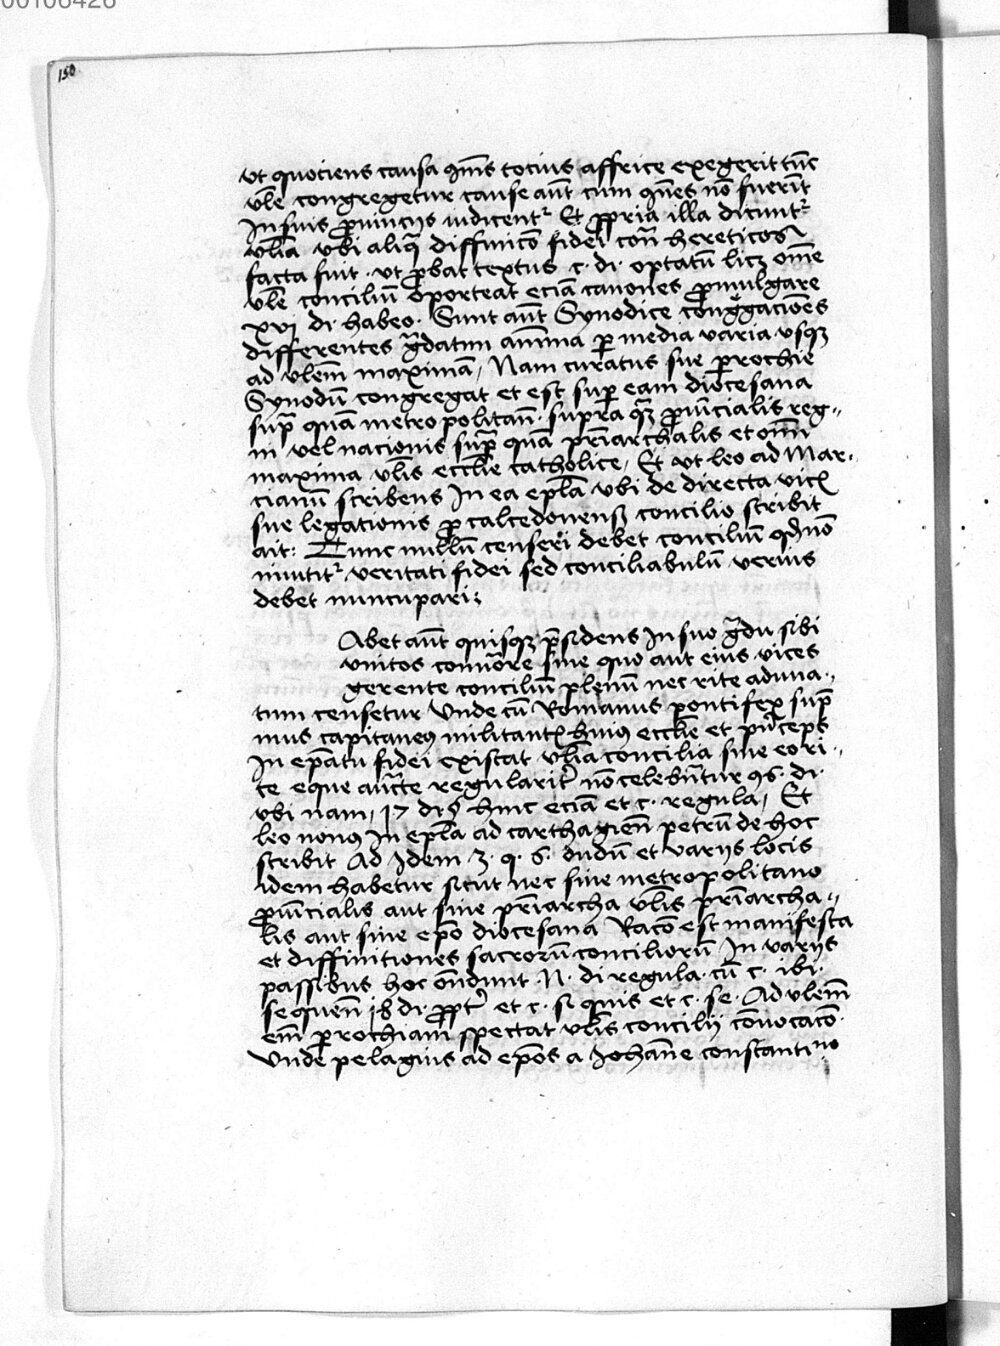 00106426
150
ut quociens causa 9mūs tocius affrice exegerit tūc
vle congregetur cause aūt cum q̄nes nō fuerīt
In suis ꝓuincijs iudicent᷑ Et ꝓpria illa dicunt᷑
vlia vbi aliq̄ diffinicō fidei cōt̄ hereticos
facta fuit . vt ꝓbat textus c. di. optatū licꝫ om̄e
vle conciliū oporteat eciā canones ꝓmulgare
xvi di habeo. Sunt aūt Synodice congg̈acōes
differentes g̈datim a minīa ꝑ media varia vsqꝫ
ad vlem̄ maximā, Nam curatus sue ꝑrochie
Synodū congregat et est suꝑ eam diocesana
supͣ quā metropolitan̄ . supra qꝫ ꝓuīcialis reg=
ni vel nacionis supͣ quā pr̄iarchalis et om̄i
maxima vlis ecclīe catholice, Et vt leo ad Mar=
cianū scribens In ea epl̄a vbi de directa vicꝫ
sue legationis ꝓ calcedonenß concilio scribit
ait: Tunc nullū censeri debet conciliū qd̄ nō
innitit᷑ veritati fidei sed conciliabulū verius
debet nuncupari;
Abet aūt quisqꝫ p̄sidens In suo g̈du sibi
vnitos conuōre sine quo aut eius vices
gerente conciliū plenū nec rite aduna=
tum censetur Vnde cū Romanus pontifex supͣ
mus capitaneus militantꝫ huius ecclīe et pͥnceps
In ep̄atu fidei existat vlia concilia sine eo ri=
te eque auct̄e regularit᷑ nō celebrātur 96. di.
vbi nam, 17 di § hinc eciā et c. regula, Et
leo nonus In epl̄a ad carthagien̄ petrū de hoc
scribit Ad Idem 3. q. 6. dudū et varijs locis
idem habetur sicut nec sine metropolitano
ꝓuīcialis aut sine pr̄iarcha vlis pr̄iarcha=
lis aut sine ep̄o diocesana Racō est manifesta
et diffinitiones sacrorū conciliorū In varijs
passibus hoc on̄dunt . N. di regula . cū c. ibi.
sequen̄ 18 di. ꝓpt᷑ et c. si quis et c. se. Ad vlem̄
em̄ ꝑrochiam spectat vlis concilij cōuocacō.
Vnde pelagius ad ep̄os a Johān̄e constantino